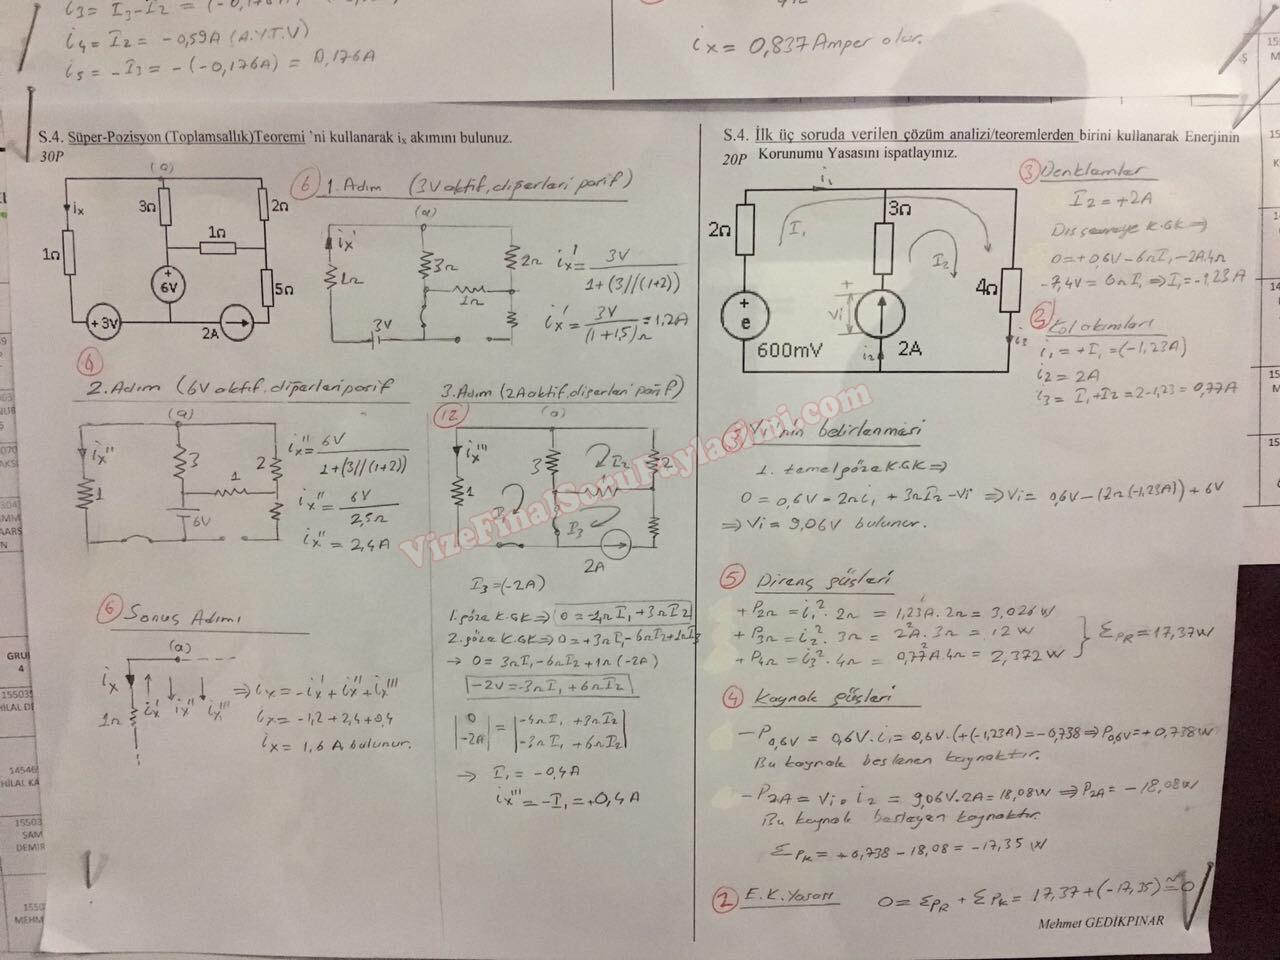 i3= I3-I2 =
i4= I2 = -0,59A (A.Y.T.V)
i5= -I3= -(-0,176A) = 0,176A
ix= 0,837 Amper olur.
S.4. Süper-Pozisyon (Toplamsallık)Teoremi 'ni kullanarak ix akımını bulunuz.
30P
(a)
ix
3Ω
2Ω
1Ω
1Ω
6V
5Ω
+3V
2A
6 1. Adım (3V aktif, diğerleri pasif)
(a)
ix'
1Ω
3Ω
2Ω
1Ω
3V
ix' = 3V / 1+(3//(1+2))
ix' = 3V / (1+1,5)Ω = 1,2A
2. Adım (6V aktif, diğerleri pasif
(a)
ix''
1
3
2
1
6V
ix'' = 6V / 1+(3//(1+2))
ix'' = 6V / 2,5Ω
ix'' = 2,4A
3. Adım (2A aktif, diğerleri pasif)
12
(a)
ix'''
1
3
2
I2
I3
2A
I3=(-2A)
1. göze K.GK => 0=-4ΩI1+3ΩI2
2. göze K.GK => 0=+3ΩI1-6ΩI2+1ΩI3
→ 0=3ΩI1-6ΩI2+1Ω(-2A)
-2V=-3ΩI1+6ΩI2
|0 -2A| = |-4ΩI1+3ΩI2 -3ΩI1+6ΩI2|
→ I1= -0,4A
ix''' = -I1 = +0,4A
6 Sonuç Adımı
(a)
ix
1Ω
ix' ix'' ix'''
=> ix=-ix'+ix''+ix'''
ix=-1,2+2,4+0,4
ix= 1,6 A bulunur.
S.4. İlk üç soruda verilen çözüm analizi/teoremlerden birini kullanarak Enerjinin
20P Korunumu Yasasını ispatlayınız.
i1
2Ω
I1
3Ω
I2
4Ω
+ e
600mV
+ Vi
i2
2A
i3
3 Denklemler
I2=+2A
Dış çevreye K.GK =>
0=+0,6V-6ΩI1-2A.4Ω
-7,4V=6ΩI1 => I1=-1,23A
Kol akımları
i1=+I1=(-1,23A)
i2=2A
i3= I1+I2=2-1,23=0,77A
Vi'nin belirlenmesi
1. temel göze K.GK =>
0=0,6V-2Ωi1+3ΩI2-Vi => Vi= 0,6V-(2Ω(-1,23A))+6V
=> Vi=9,06V bulunur.
5 Direnç güçleri
+P2Ω=i1².2Ω = 1,23²A.2Ω = 3,026W
+P3Ω=i2².3Ω = 2²A.3Ω = 12W
+P4Ω=i3².4Ω = 0,77²A.4Ω = 2,372W
ΣPR=17,37W
4 Kaynak güçleri
-P0,6V = 0,6V.i1=0,6V.(+(-1,23A))=-0,738 => P0,6V=+0,738W
Bu kaynak beslenen kaynaktır.
-P2A = Vi.i2 = 9,06V.2A=18,08W => P2A= -18,08W
Bu kaynak besleyen kaynaktır.
ΣPK=+0,738-18,08=-17,35 W
2 E.K.Yasası 0= ΣPR + ΣPK = 17,37+(-17,35)≅0
Mehmet GEDİKPINAR
VizeFinalSoruPaylasimi.com